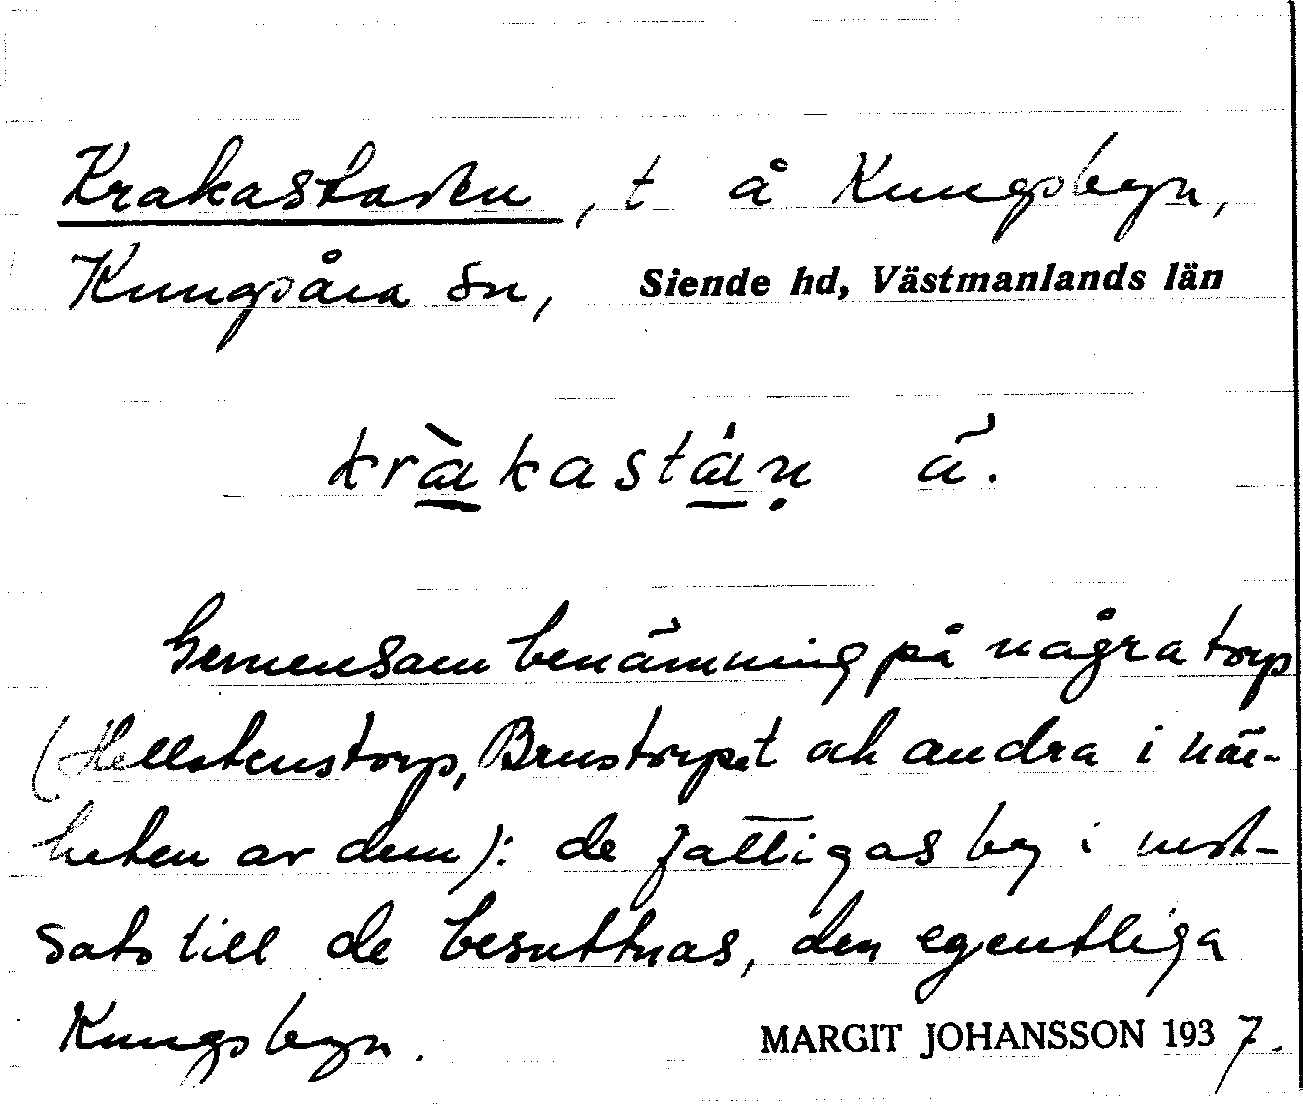 Krakastaden, t å Kungsbyn,
Kungsåra sn, Siende hd, Västmanlands län
kràkastán ä.
Gemensam benämning på några torp
(Hellstenstorp, Brustorpet och andra i när-
heten av dem): de fattigas by i mot-
sats till de besuttnas, den egentliga
Kungsbyn. MARGIT JOHANSSON 1937.